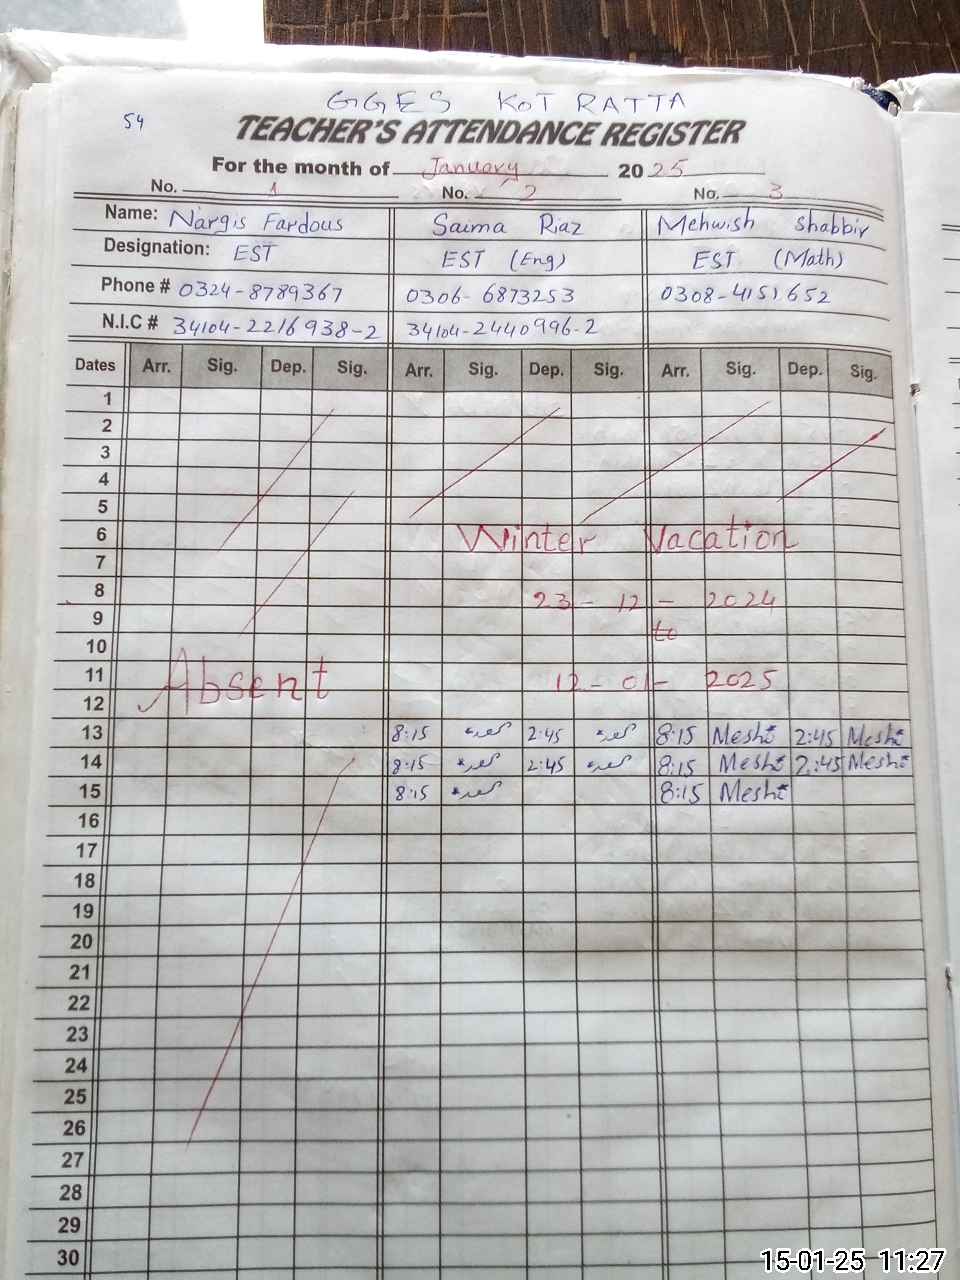 GGES KOT RATTA
54
TEACHER'S ATTENDANCE REGISTER
For the month of January 2025
No. 1 No. 2 No. 3
Name: Nargis Fardous Saima Riaz Mehwish Shabbir
Designation: EST EST (Eng) EST (Math)
Phone # 0324-8789367 0306-6873253 0308-4151652
N.I.C # 34104-2216938-2 34104-2440996-2
Dates Arr. Sig. Dep. Sig. Arr. Sig. Dep. Sig. Arr. Sig. Dep. Sig.
1
2
3
4
5
6 Winter Vacation
7
8 23-12-2024
9 to
10
11 Absent 12-01-2025
12
13 8:15 2:45 8:15 Meshi 2:45 Meshi
14 8:15 2:45 8:15 Meshi 2:45 Meshi
15 8:15 8:15 Meshi
16
17
18
19
20
21
22
23
24
25
26
27
28
29
30
15-01-25 11:27